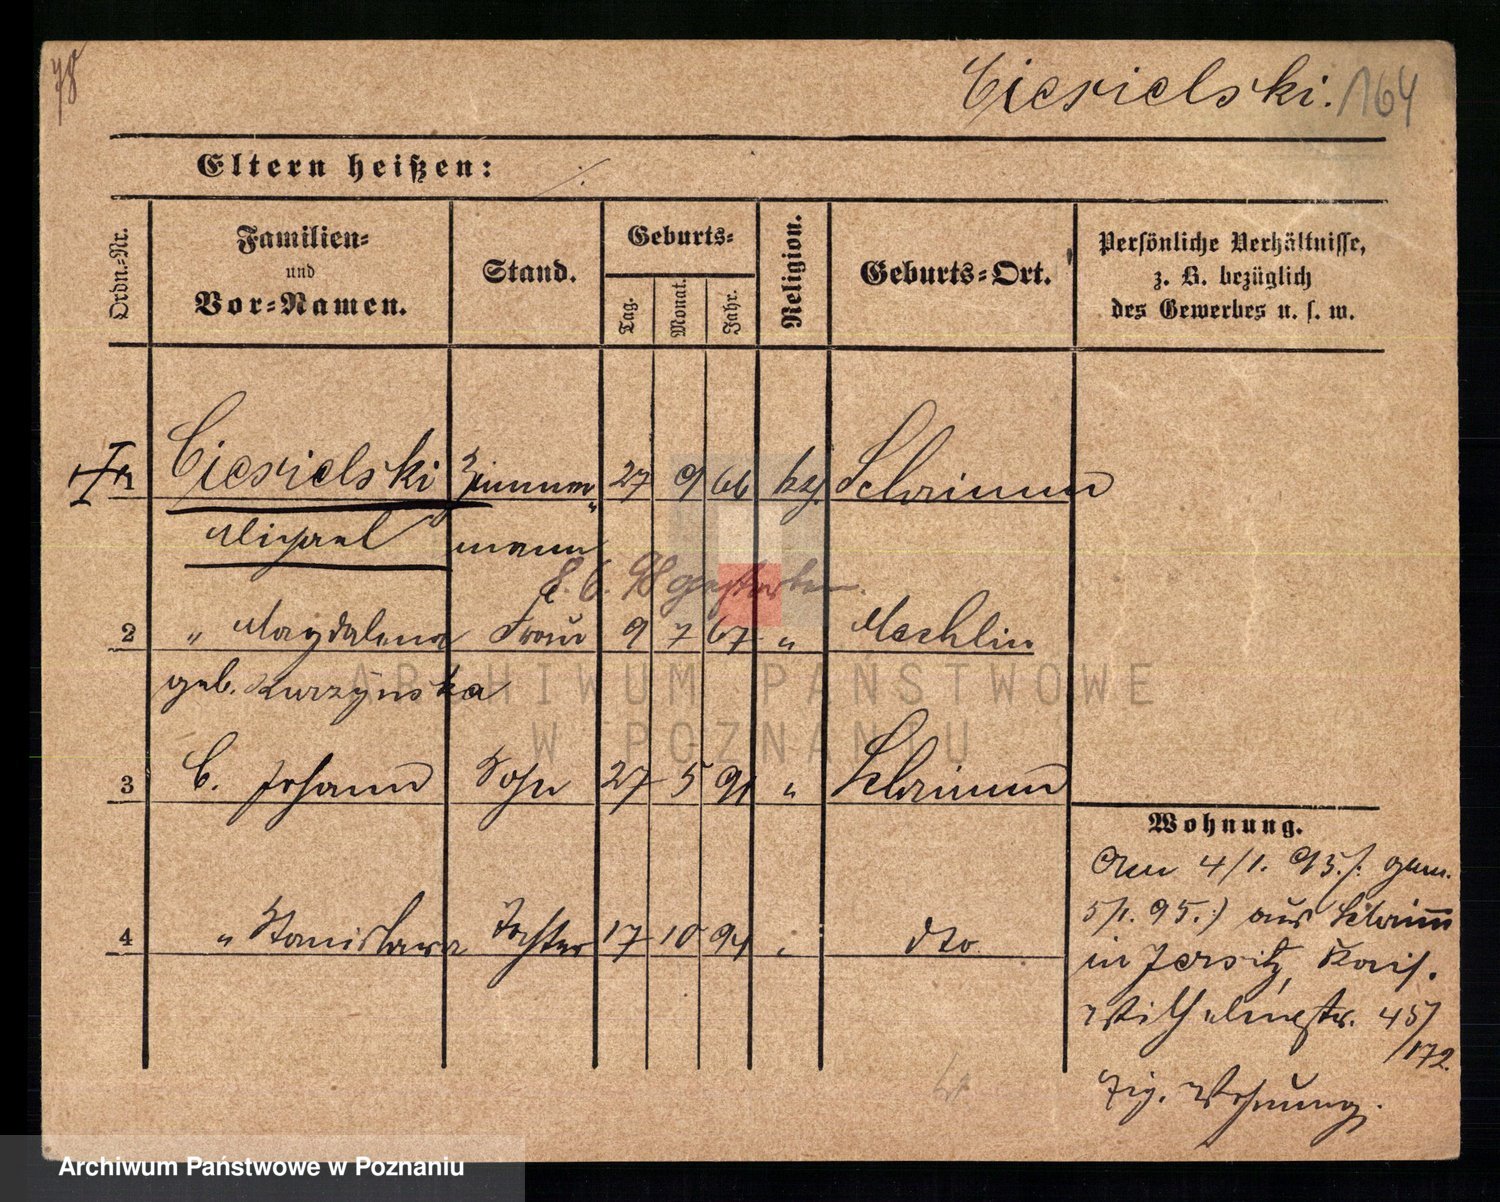 78
Ciesielski. 164
Eltern heißen:
Ordn.-Nr.
Familien-
und
Vor-Namen.
Stand.
Geburts-
Tag.
Monat.
Jahr.
Religion.
Geburts-Ort.
Persönliche Verhältnisse,
z. B. bezüglich
des Gewerbes u. s. w.
Ciesielski Zimmer 27 9 66 kg. Schrimm
Michael mann
8. 6. 98 gestorben.
2 " Magdalena Frau 9 7 67 " Mechlin
geb. Kurzynska
3 C. Johann Sohn 27 5 91 " Schrimm
4 " Stanislawa Tochter 17 10 94 " dto
Wohnung.
Am 4/1. 95. /: gem.
5/1. 95. :/ aus Schrimm
in Jersitz, Kais.
Wilhelmstr. 45/
/172
Eig. Wohnung.
ARCHIWUM PAŃSTWOWE
W POZNANIU
Archiwum Państwowe w Poznaniu